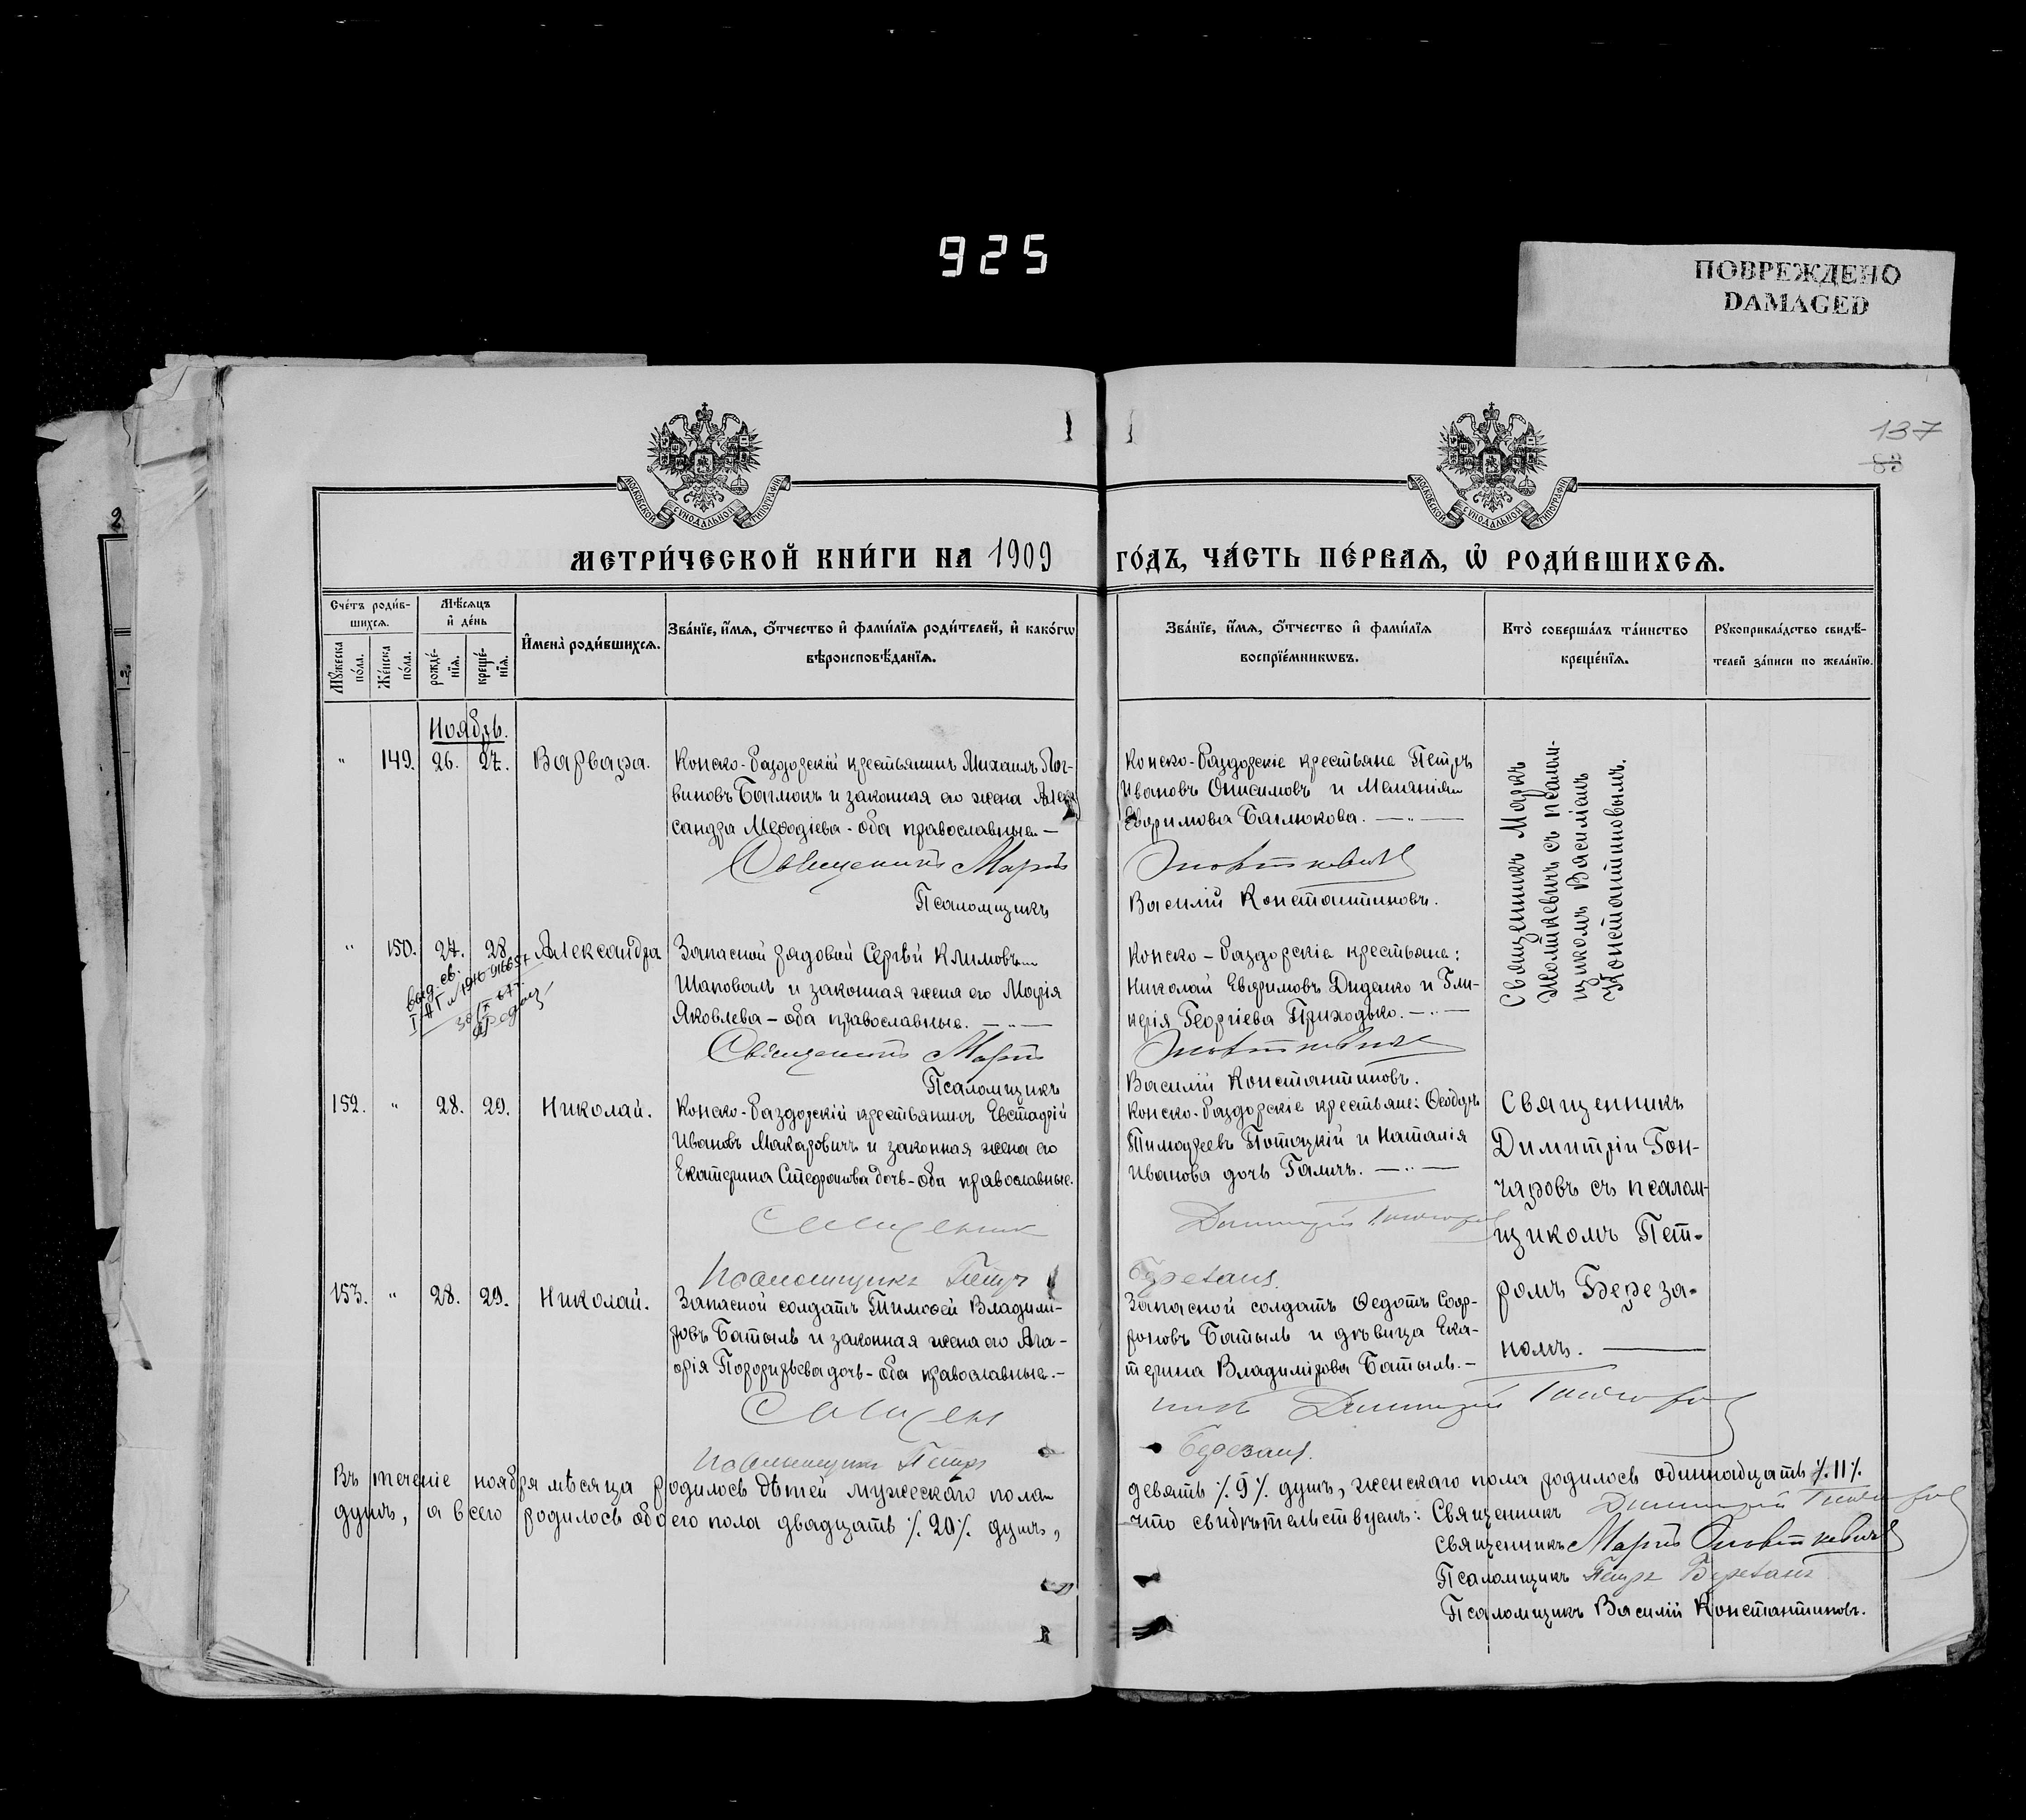 925
ПОВРЕЖДЕНО
DAMAGED
137
83
МОСКОВСКОЙ СѴНОДАЛЬНОЙ ТИПОГРАФІИ
МОСКОВСКОЙ СѴНОДАЛЬНОЙ ТИПОГРАФІИ
МЕТРИ́ЧЕСКОЙ КНИ́ГИ НА 1909 ГО́ДЪ, ЧА́СТЬ ПЕ́РВАѦ, Ѽ РОДИ́ВШИХСѦ.
Сче́тъ роди́в-
шихсѧ.
Мꙋжеска по́ла.
Же́нска по́ла.
Мѣ́сѧцъ
и҆ де́нь
рожде́-
нїѧ.
креще́-
нїѧ.
И҆мена̀ роди́вшихсѧ.
Зва́нїе, и҆́мѧ, ѻ҆́тчество и҆ фами́лїѧ роди́телей, и҆ како́гѡ
вѣроисповѣ́данїѧ.
Зва́нїе, и҆́мѧ, ѻ҆́тчество и҆ фами́лїѧ
воспрїе́мникѡвъ.
Кто̀ соверша́лъ та́инство
креще́нїѧ.
Рꙋкоприкла́дство свидѣ́-
телей за́писи по жела́нїю.
Ноябрь.
" 149. 26. 27. Варвара.
Конско-Раздорскій крестьянинъ Михаилъ Лог-
виновъ Баглюкъ и законная его жена Алек
сандра Меѳодіева - оба православные. —
Священникъ Маркъ
Псаломщикъ
Конско-Раздорскіе крестьяне Петръ
Ивановъ Онисимовъ и Меланія
Евфимова Баглюкова. — " —
Жолткевичъ
Василій Константиновъ.
Священникъ Маркъ
Жолткевичъ съ псалом-
щикомъ Василіемъ
Константиновымъ.
" 150. 27. 28 Александра
выд. св.
Запасной рядовой Сергѣй Климовъ
Шаповалъ и законная жена его Марія
Яковлева - оба православные. — " —
Священникъ Маркъ
Псаломщикъ
Конско - Раздорскіе крестьяне:
Николай Евфимовъ Диденко и Гли-
керія Георгіева Приходько. — " —
Жолткевичъ
Василій Константиновъ.
152. " 28. 29. Николай.
Конско-Раздорскій крестьянинъ Евстафій
Ивановъ Макаровичъ и законная жена его
Екатерина Стефанова дочь - оба православные.
Священник
Псаломщикъ Петръ
Конско-Раздорскіе крестьяне: Ѳеодоръ
Тимофеевъ Потоцкій и Наталія
Иванова дочь Галичъ. — " —
Димитрій Гончаровъ
Березанъ.
Священникъ
Димитрій Гон-
чаровъ съ псалом-
щикомъ Пет-
ромъ Береза-
номъ. —
153. " 28. 29. Николай.
Запасной солдатъ Тимоѳей Владими-
ровъ Батыль и законная жена его Ага-
фія Порфирьева дочь - оба православные. -
Священ
Псаломщикъ Петръ
Запасной солдатъ Ѳедотъ Соф-
роновъ Батыль и дѣвица Ека-
терина Владимірова Батыль. -
никъ Димитрій Гончаровъ
Березанъ.
Въ теченіе ноября мѣсяца родилось дѣтей мужескаго пола девять %9% душъ, женскаго пола родилось одиннадцать %11%
душъ, а всего родилось обоего пола двадцать %20% душъ, что свидѣтельствуемъ: Священникъ Димитрій Гончаровъ
Священникъ Маркъ Жолткевичъ
Псаломщикъ Петръ Березанъ
Псаломщикъ Василій Константиновъ.